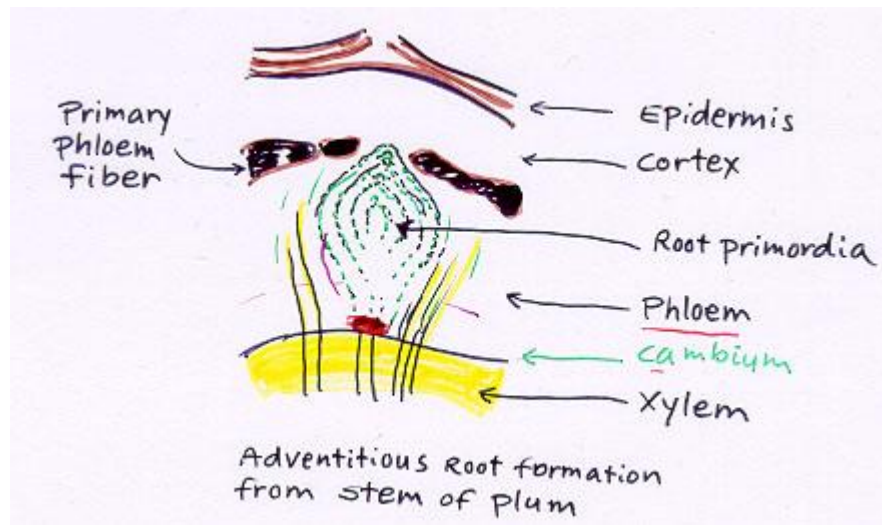 Primary
Phloem
fiber
Epidermis
Cortex
Root primordia
Phloem
Cambium
Xylem
Adventitious Root formation
from stem of Plum